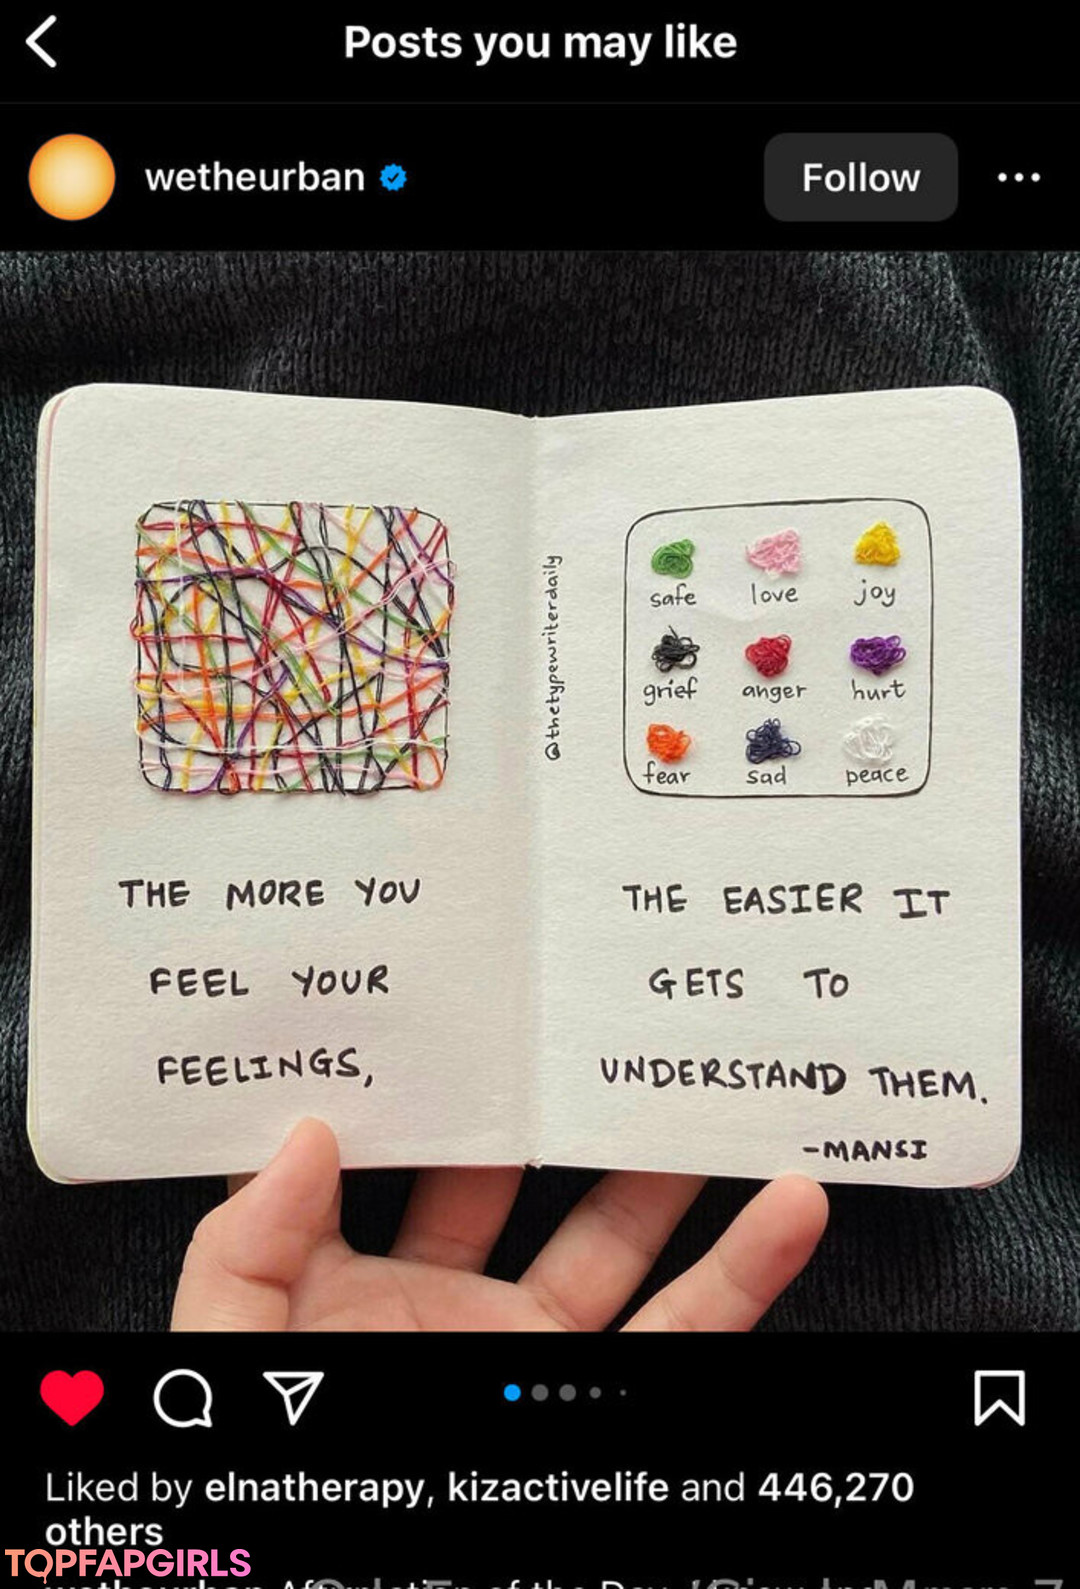 Posts you may like
wetheurban
Follow
@thetypewriterdaily
safe love joy
grief anger hurt
fear sad peace
THE MORE YOU
FEEL YOUR
FEELINGS,
THE EASIER IT
GETS TO
UNDERSTAND THEM.
-MANSI
Liked by elnatherapy, kizactivelife and 446,270
others
TOPFAPGIRLS
wetheurban Affirmation of the Day